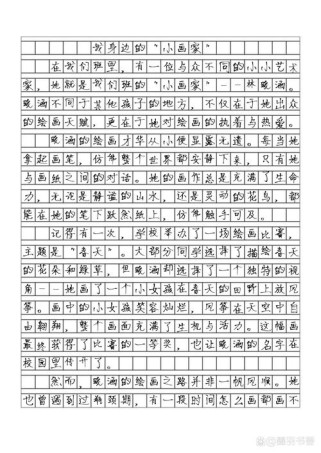 我身边的“小画家”
在我们班里，有一位与众不同的小小艺术
家，她就是我们班的“小画家”——林晚涵。
晚涵不同于其他孩子的地方，不仅在于她出众
的绘画天赋，更在于对绘画的执着与热爱。
晚涵的绘画才华从小便显露无遗。每当她
拿起画笔，仿佛整个世界都安静下来，只有她
与画纸之间的对话。她的画作总是充满了生命
力，无论是静谧的山水，还是灵动的花鸟，都
能在她的笔下跃然纸上，仿佛触手可及。
记得有一次，学校举办了一场绘画比赛，
主题是“春天”。大部分同学选择了描绘春天
的花朵和绿草，但晚涵却选择了一个独特的视
角——她画了一个小女孩在春天的田野上放风
筝。画中的小女孩笑容灿烂，风筝在天空中自
由翱翔，整个画面充满了生机与活力。这幅画
最终获得了比赛的一等奖，也让晚涵的名字在
校园里传开了。
然而，晚涵的绘画之路并非一帆风顺。她
也曾遇到过瓶颈期，有一段时间怎么画都画不